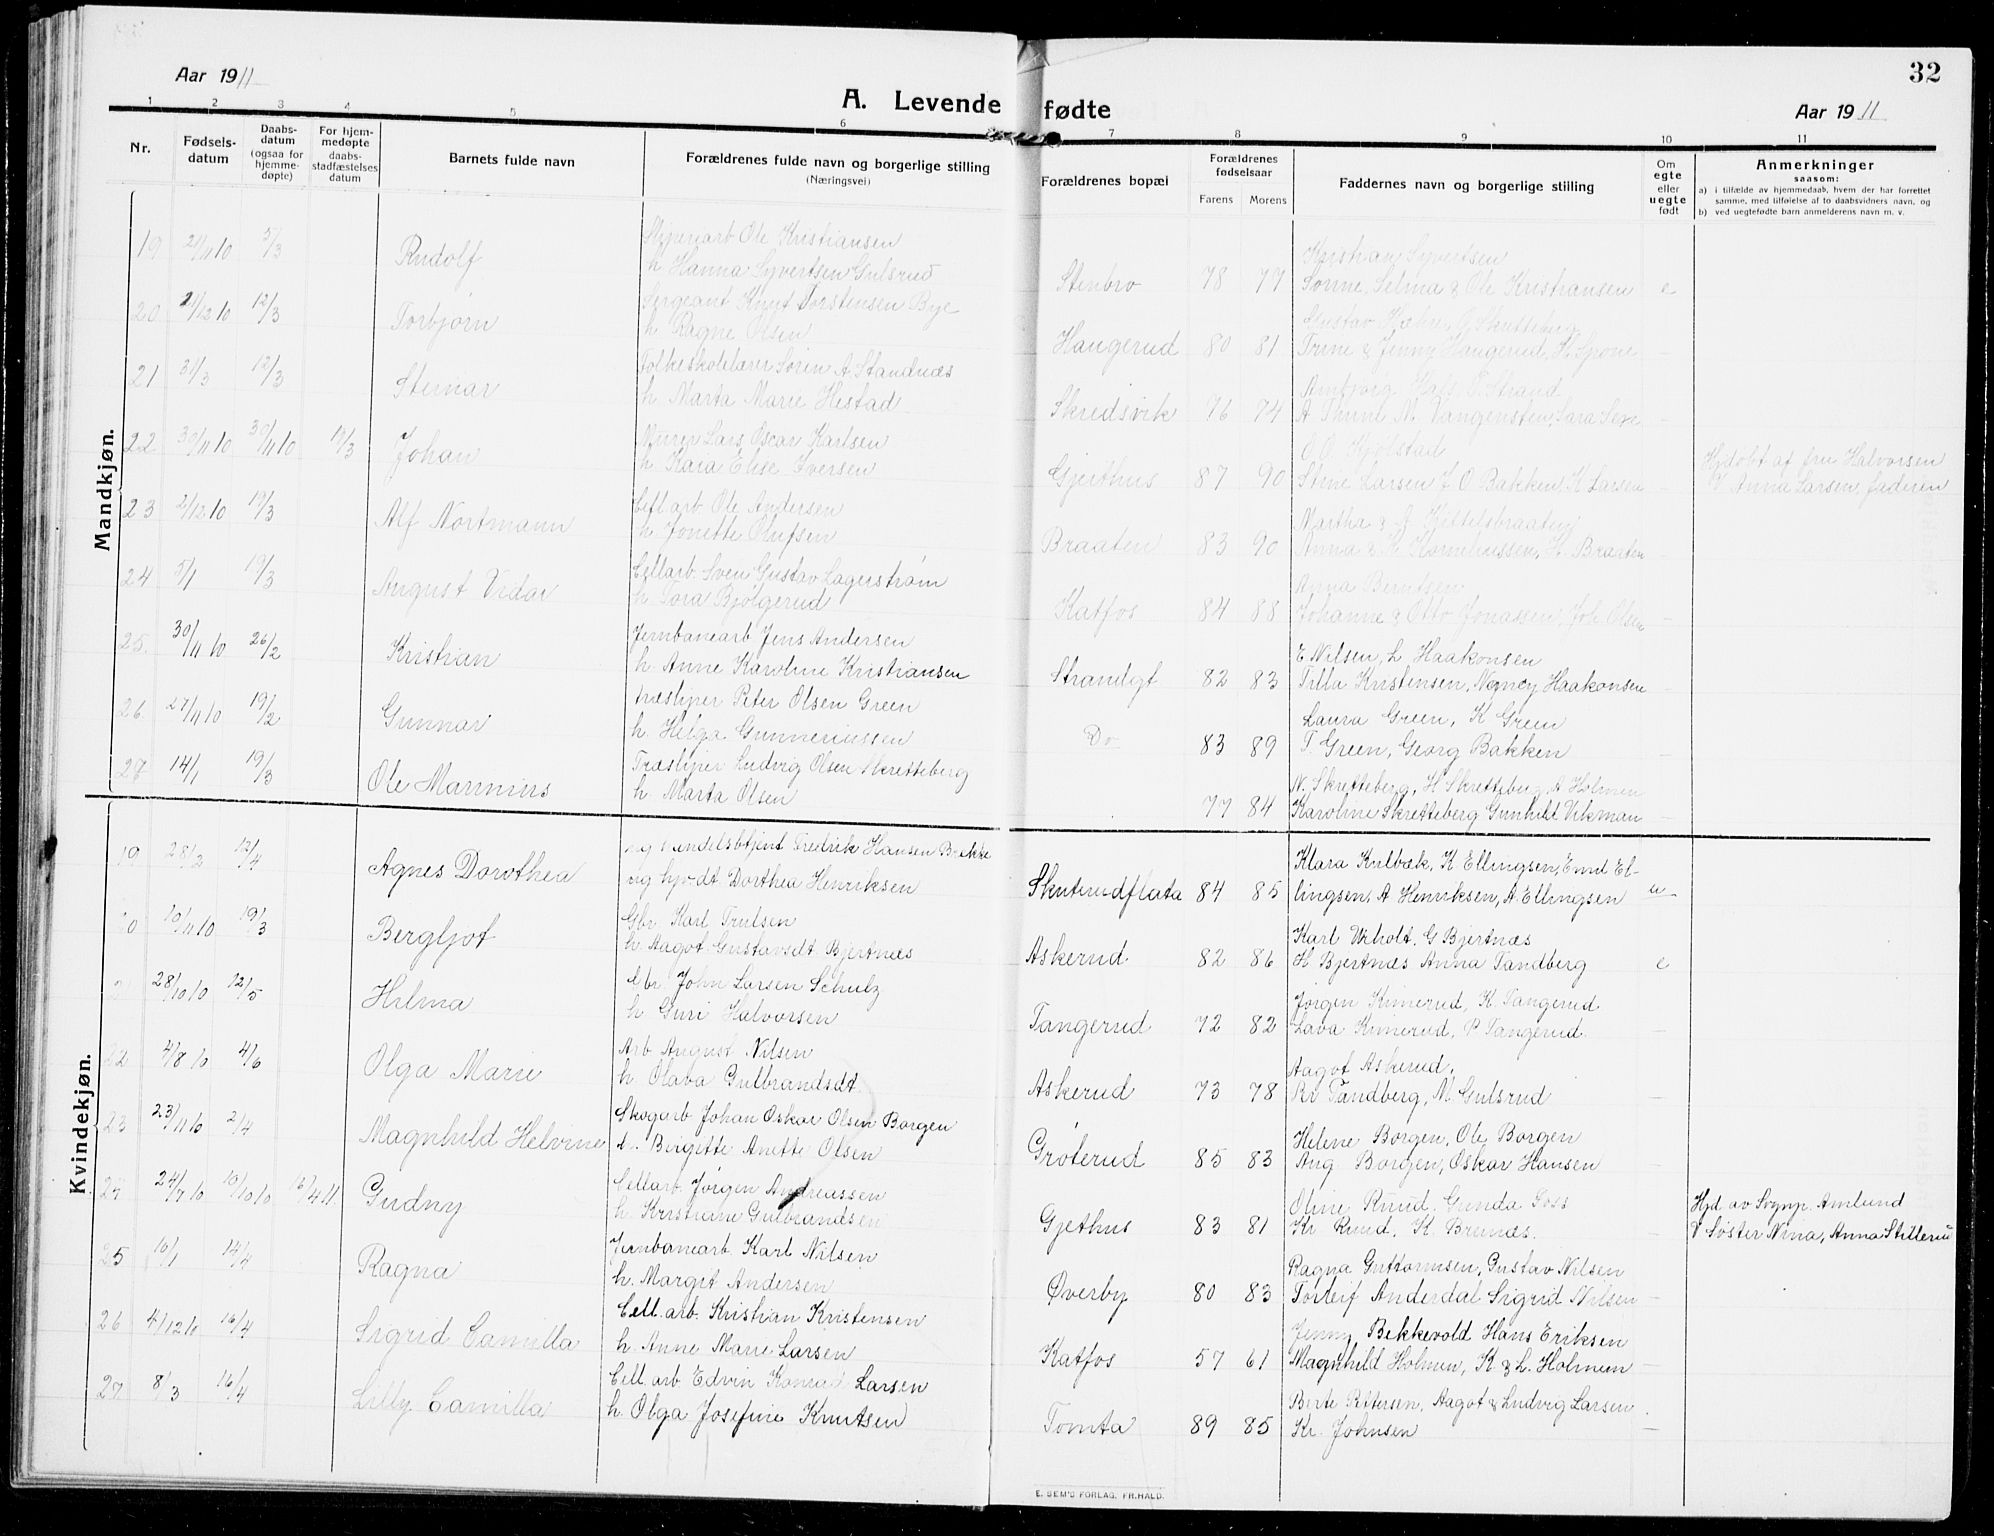 32
Aar 1911
A. Levende fødte
Aar 1911
1 2 3 4 5 6 7 8 9 10 11
Nr.
Fødsels-
datum
Daabs-
datum
(ogsaa for
hjemme-
døpte)
For hjem-
medøpte
daabs-
stadfæstelses
datum
Barnets fulde navn
Forældrenes fulde navn og borgerlige stilling
(Næringsvei)
Forældrenes bopæl
Forældrenes
fødselsaar
Farens Morens
Faddernes navn og borgerlige stilling
Om
egte
eller
uegte
født
Anmerkninger
saasom:
a) i tilfælde av hjemmedaab, hvem der har forrettet
samme, med tilføielse af to daabsvidners navn, og
b) ved uegtefødte barn anmelderens navn m. v.
Mandkjøn.
19 21/11 10 5/3 Rudolf
Ole Kristiansen
h. Hanna Syvertsen Gulsrud
Stenbro 78 77
Kristian Syvertsen
Selma & Ole Kristiansen e
20 21/12 10 12/3 Torbjørn
Sergeant Knut Torstensen Bye
h. Ragne Olsen
Haugerud 80 81
Trine & Jenny Haugerud, H. Sponе -
21 31/3 12/3 Steinar
Folkeskolelærer Søren A. Standnæs
h. Marta Marie Hestad
Skredsvik 76 74
A Thune N. Vangensten, Sara -
22 30/11 10 30/11 10 19/3 Johan
Murer Lars Oscar Karlsen
h. Kara Elise Iversen
Gjeithus 87 90
O. O. Kjølstad
Stine Larsen J O Bakken K Larsen -
Hjdøbt af fru Halvorsen
V Anna Larsen, faderen
23 2/12 10 19/3 Alf Nortmann
Cell arb Ole Andersen
h. Jonette Olufsen
Braaten 83 90
Martha & A Kittelsbraaten
Anna & H. H. Braaten -
24 5/1 19/3 August Vidar
Cellarb. Sven Gustav Lagerstrøm
h. Tora Bjølgerud
Katfos 84 88
Anna Berntsen
Johanne & Otto Jonassen, Joh Olsen -
25. 30/11 10 26/2 Kristian
Jernbanearb Jens Andersen
h. Anne Karoline Kristiansen
Strandgt 82 83
E. Nilsen, L Haakonsen
Tilla Kristensen, Nancy Haakonsen -
26 27/11 10 19/2 Gunnar
Træsliper Peter Olsen Green
h. Helga Gunneriussen
Do 83 89
Laura Green, K Green
T. Green, Georg Bakken -
27 14/1 19/3 Ole Marinius
Træsliper Ludvig Olsen Skretteberg
h. Marta Olsen
77 84
N. Skretteberg, H Skretteberg, A Holmen
Karoline Skretteberg Gunhild Vikman -
Kvindekjøn.
19 28/2 12/4 Agnes Dorothea
ug handelsbtjent Fredrik Hansen Brekke
ug hjv dt Dorthea Henriksen
Skuterudflata 84 85
Klara Kulbæk, K Ellingsen, Emil El-
lingsen, A Henriksen, A Ellingsen u
20 10/11 10 19/3 Bergljot
Gbr Karl Trulsen
h. Aagot Gustavsdt. Bjertnæs
Askerud. 82 86
Karl Viholt, G Bjertnæs
H Bjertnæs Anna Tandberg e
21 28/10 10 12/5 Hilma
John Larsen Schulz
h Guri Halvorsen
Tangerud 72 82
Jørgen Kinnerud, K. Tangerud
Lava Kinnerud, P Tangerud. -
22 4/8 10 4/6 Olga Marie
Arb August Nilsen
h Olava Gulbrandsdt.
Askerud 73 78
Aagot Askerud.
Kr Tandberg, M. Gulsrud -
23 23/11 10 2/4 Magnhild Helvine
Skogarb Johan Oskar Olsen Borgen
Birgitte Anette Olsen
Grøterud 85 83
Helene Borgen, Ole Borgen
Aug. Borgen, Oskar Hansen -
24 24/7 10 10/10 10 16/4 11 Gudny
Cellarb. Jørgen Andreassen
h. Kristiane Gulbrandsen
Gjethus 83 81
Oline Ruud, Gunda Foss
Kr Ruud. K. Brenæs. -
Hjd av Sognp. Amlund
V Søster Nina, Anna Stillerud
25 10/1 14/4 Ragna
Jernbanearb. Karl Nilsen
h. Margit Andersen
Øverby 80 83
Ragna Guttormsen, Gustav Nilsen
Torleif Anderdal Sigrid Nilsen -
26 4/12 10 16/4 Sigrid Camilla
Cell. arb. Kristian Kristensen
h. Anne Marie Larsen
Katfos 57 61
Jenny Bekkevold Hans Eriksen
Magnhild Holmen, K & L. Holmen -
27 8/3 16/4 Lilly Camilla
Cell. arb. Edvin Konrad Larsen
h. Olga Josefine Knutsen
Tomta 89 85
Berte Pettersen, Aagot & Ludvig Larsen.
Kr. Johnsen -
E. SEM'S FORLAG, FR.HALD.